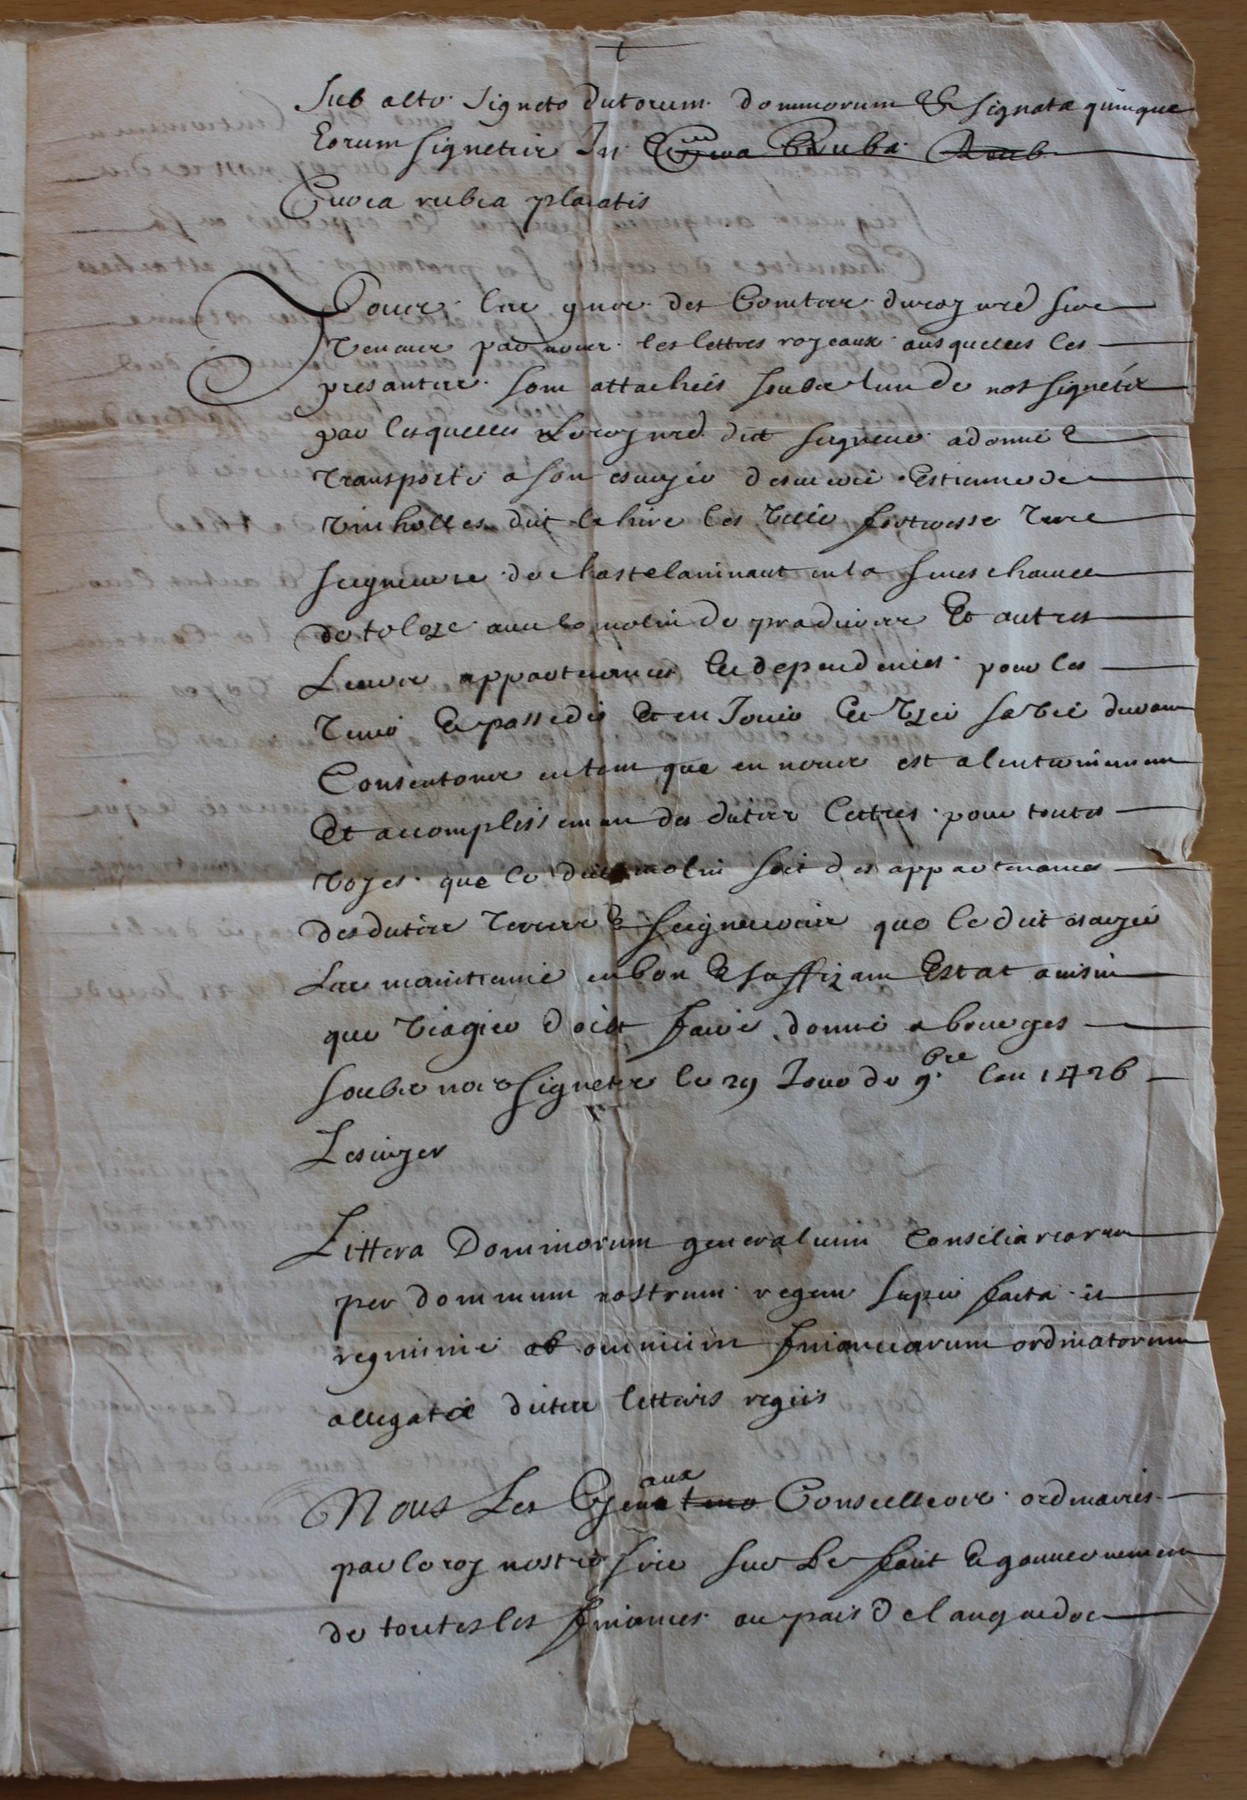 Sub alto signeto dictorum dominorum & signata quinque
Eorum signetis In Cuva Ruba
Cuvea rubea placatis
Nous les gens des Comtes du roy nred sire
Veues par nous les lettres royeaux ausquelles les
presantes sont attachées soubz lun de nos signetz
par lesquelles le roy nred dit seigneur a donné &
transporté a son escuyer descurie Estienne de
Vinholles dit lahire les Ville fortresse terre
seigneurie de chastelaninaut en la seneschaucee
de toloze avec le molin de pradieres Et autres
Leurs appartenances Et dependences pour les
tenir Et posseder Et en Jouir Et Uzer sa vie durant
Consentons en tant que en nous est a lenterinement
Et accomplissement des dictes lettres pour toutes
voyes que le dict molin soit des appartenances
des dictes terres & seigneurie que le dit escuyer
Les maintienne en bon & soffizant Estat ainsin
que viagier doict faire donné a bourges
soubz nos signetz le 29 Jour de 9.bre lan 1426
Lescuyer
Littera Dominorum generalium Consiliariorum
per dominum nostrum regem super facta et
regimine omnium financiarum ordinatorum
allegata dictis letteris regiis
Nous Les Genaux Conseilleors ordinaires
par le roy nostre sire sur Le fait & gouvernement
de toutes les finances au pais de languedoc